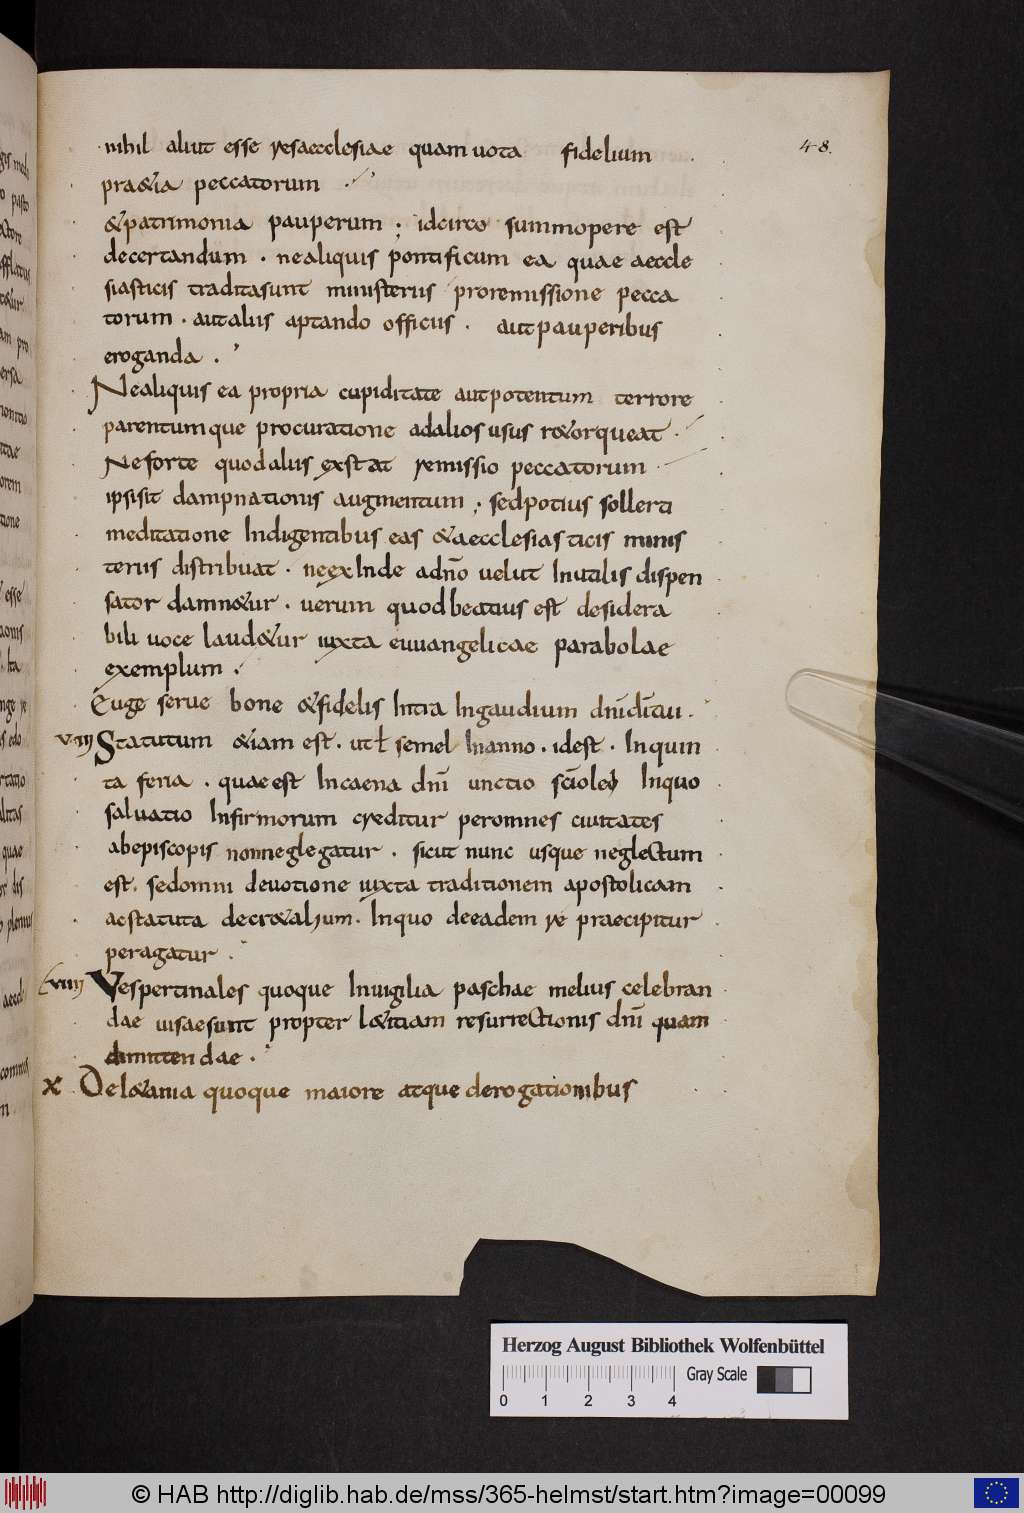 48.
nihil aliut esse resaecclesiae quam uota fidelium
pra&ia peccatorum
&patrimonia pauperum; idcirco summopere est
decertandum. nealiquis pontificum ea quae aeccle
siasticis traditasunt ministeriis proremissione pecca
torum. autaliis aptando officiis. autpauperibus
eroganda.
Nealiquis ea propria cupiditate autpotentum terrore
parentumque procuratione adalios usus r&orqueat.
Neforte quodaliis exstat remissio peccatorum
ipsisit dampnationis augmentum; sedpotius sollerti
meditatione Indigentibus eas &aecclesiasticis minis
teriis distribuat. neexInde adño uelut Inutilis dispen
sator damn&ur. uerum quodbeatius est desidera
bili uoce laud&ur iuxta euuangelicae parabolae
exemplum.
Euge serue bone &fidelis Intra Ingaudium dnĩdĩtui.
VIIII Statutum &iam est. utł semel Inanno. idest. Inquin
ta feria. quaeest Incaena dnĩ unctio sc̃iolei Inquo
saluatio Infirmorum creditur peromnes ciuitates
abepiscopis nonneglegatur. sicut nunc usque neglectum
est. sedomni deuotione iuxta traditionem apostolicam
acstatuta decr&alium. Inquo deeadem re praecipitur
peragatur.
VIIII Vespertinales quoque Inuigilia paschae melius celebran
dae uisaesunt propter l&itiam resurrectionis dnĩ quam
dimittendae.
X Del&ania quoque maiore atque derogationibus
Herzog August Bibliothek Wolfenbüttel
Gray Scale
0 1 2 3 4
© HAB http://diglib.hab.de/mss/365-helmst/start.htm?image=00099